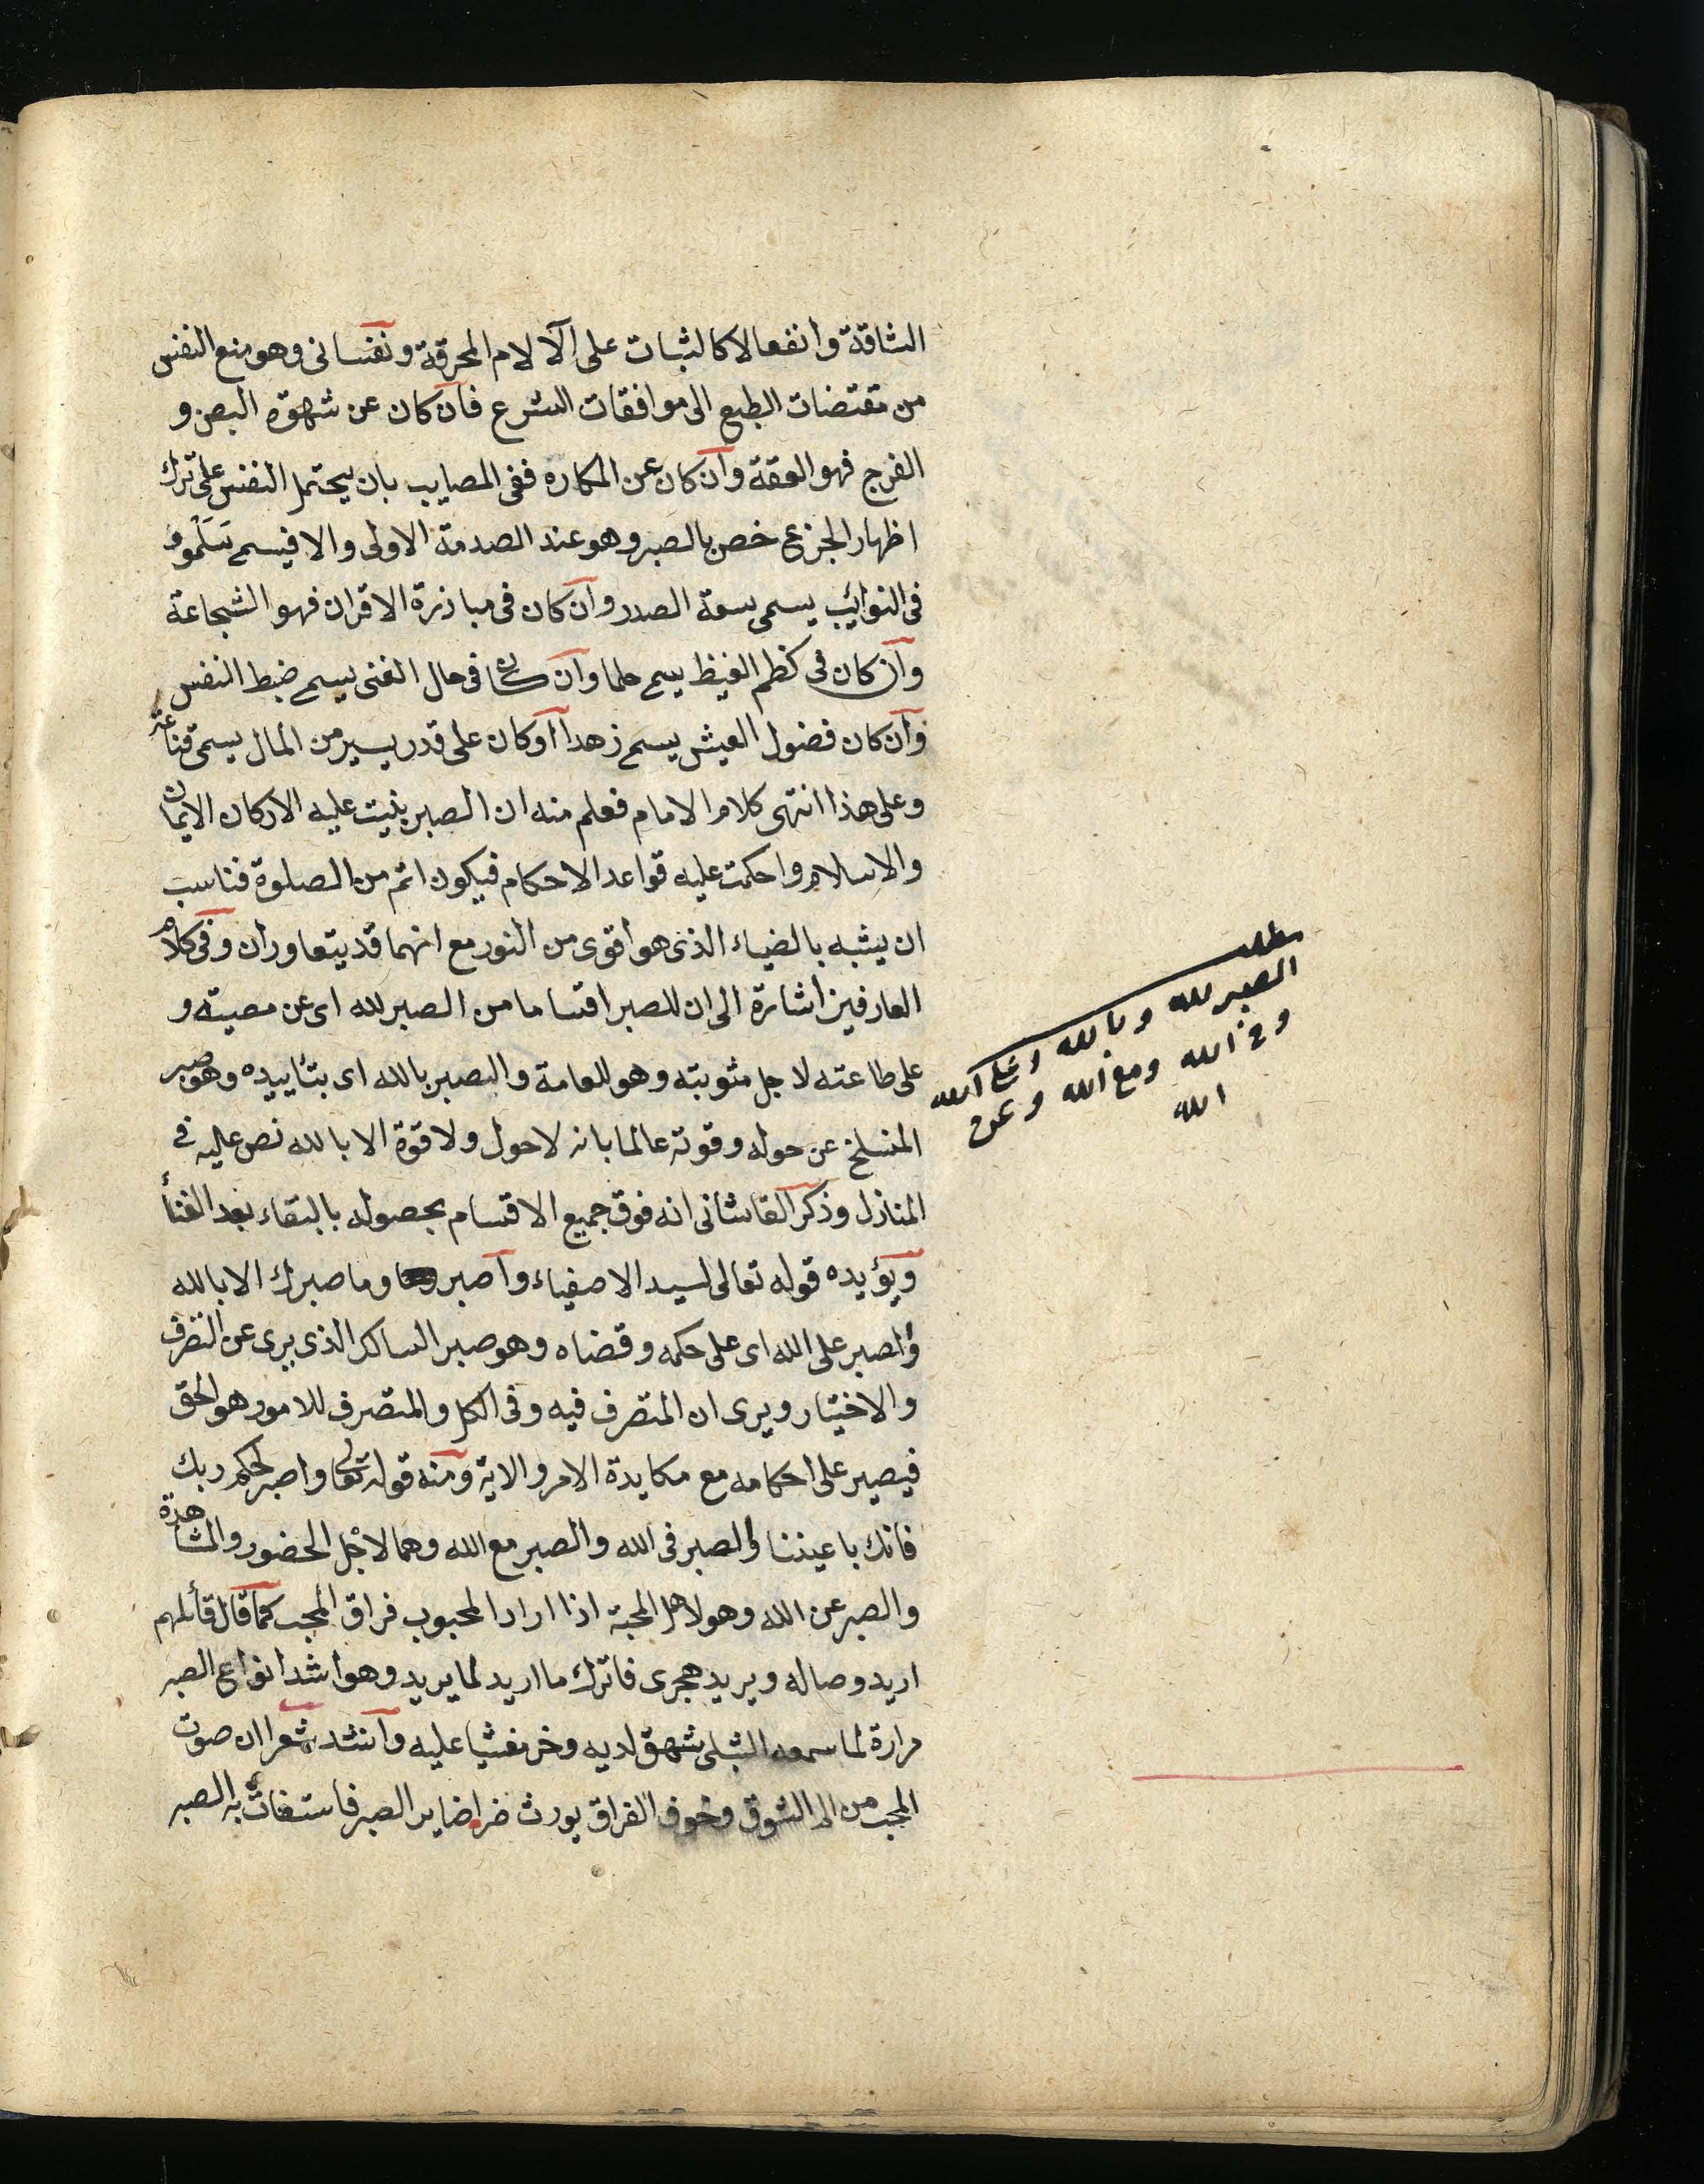 الشاقة وانفعالا كالثبات على الآلام المحرقة ونفسانى وهو منع النفس
من مقتضات الطبع الى موافقات الشرع فان كان عن شهوة البصن و
الفرج فهو العفة وان كان عن المكاره ففى المصايب بان يحتمل النفس على ترك
اظهار الجزع خص بالصبر وهو عند الصدمة الاولى والا فيسمى
فى النوائب يسمى سعة الصدر وان كان فى مبارزة الاقران فهو الشجاعة
وان كان فى كظم الغيظ يسمى حلما وان كان فى حال الغنى يسمى ضبط النفس
وان كان فضول العيش يسمى زهدا او كان على قدر يسير من المال يسمى قناعة
وعلى هذا انتهى كلام الامام فعلم منه ان الصبر بنيت عليه الاركان الايمان
والاسلام واحكمت عليه قواعد الاحكام فيكون اتم من الصلوة فناسب
ان يشبه بالضياء الذى هو اقوى من النور مع انهما قد يتعاوران وفى كلام
العارفين اشارة الى ان للصبر اقساما من الصبر لله اى عن معصيته و
على طاعته لاجل مثوبته وهو للعامة والصبر بالله اى بتأييده وهو صبر
المنسلخ عن حوله وقوته عالما بانه لا حول ولا قوة الا بالله نص عليه فى
المنازل وذكر القاشانى انه فوق جميع الاقسام بحصوله بالبقاء بعد الفنأ
ويؤيده قوله تعالى لسيد الاصفياء واصبر وما صبرك الا بالله
والصبر على الله اى على حكمه وقضاه وهو صبر السالك الذى برى عن التصرف
والاختيار ويرى ان المتصرف فيه وفى الكل والمتصرف للامور هو الحق
فيصير على احكامه مع مكايدة الامر والاية ومنه قوله تعالى واصبر لحكم ربك
فانك باعيننا والصبر فى الله والصبر مع الله وهما لاجل الحضور والمشاهدة
والصبر عن الله وهو لاهل المحبة اذا اراد المحبوب فراق المحب كما قال قائلهم
اريد وصاله ويريد هجرى فاترك ما اريد لما يريد وهو اشد انواع الصبر
مرارة لما سمعه الشبلى شهق لديه وخر مغشيا عليه وانشد شعرا ان صوت
المحب من الم الشوق وخوف الفراق يورث ضرا صابر الصبر فاستغاث به الصبر
مطلب
الصبر لله وبالله وعلى الله
وفى الله ومع الله وعن
الله